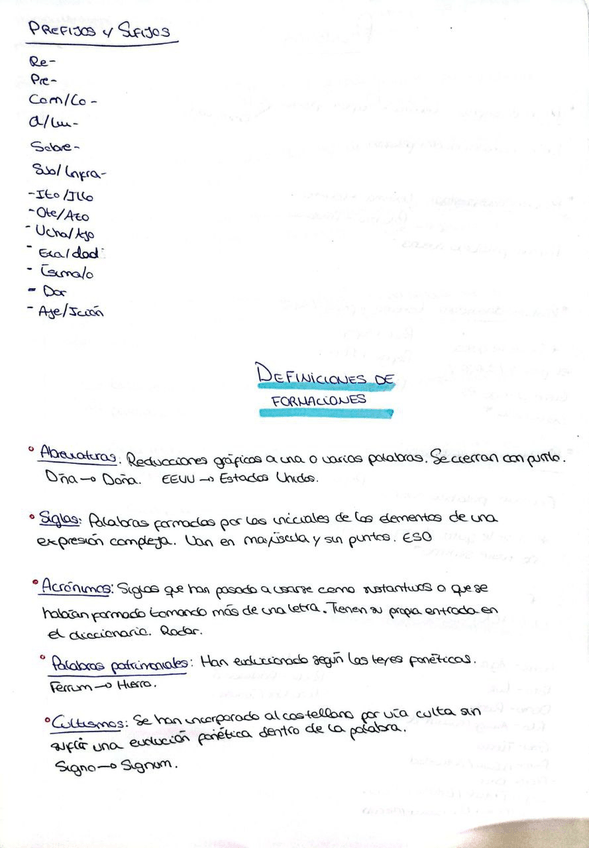 PREFIJOS Y SUFIJOS
Re-
Pre-
Com/Co-
a/In-
Sobre-
Sub/Infra-
-Ito/Illo
-Ote/Azo
-Ucho/Ajo
- Eza/dad
- Ísimo/o
- Dor
- Aje/Ición
DEFINICIONES DE
FORMACIONES
° Abreviaturas. Reducciones gráficas a una o varias palabras. Se cierran con punto.
Dña → Doña. EEUU → Estados Unidos.
° Siglas: Palabras formadas por las iniciales de los elementos de una
expresión compleja. Van en mayúscula y sin puntos. ESO
° Acrónimos: Siglas que han pasado a usarse como sustantivos o que se
habían formado tomando más de una letra. Tienen su propia entrada en
el diccionario. Radar.
° Palabras patrimoniales: Han evolucionado según las leyes fonéticas.
Ferrum → Hierro.
° Cultismos: Se han incorporado al castellano por vía culta sin
sufrir una evolución fonética dentro de la palabra.
Signo → Signum.